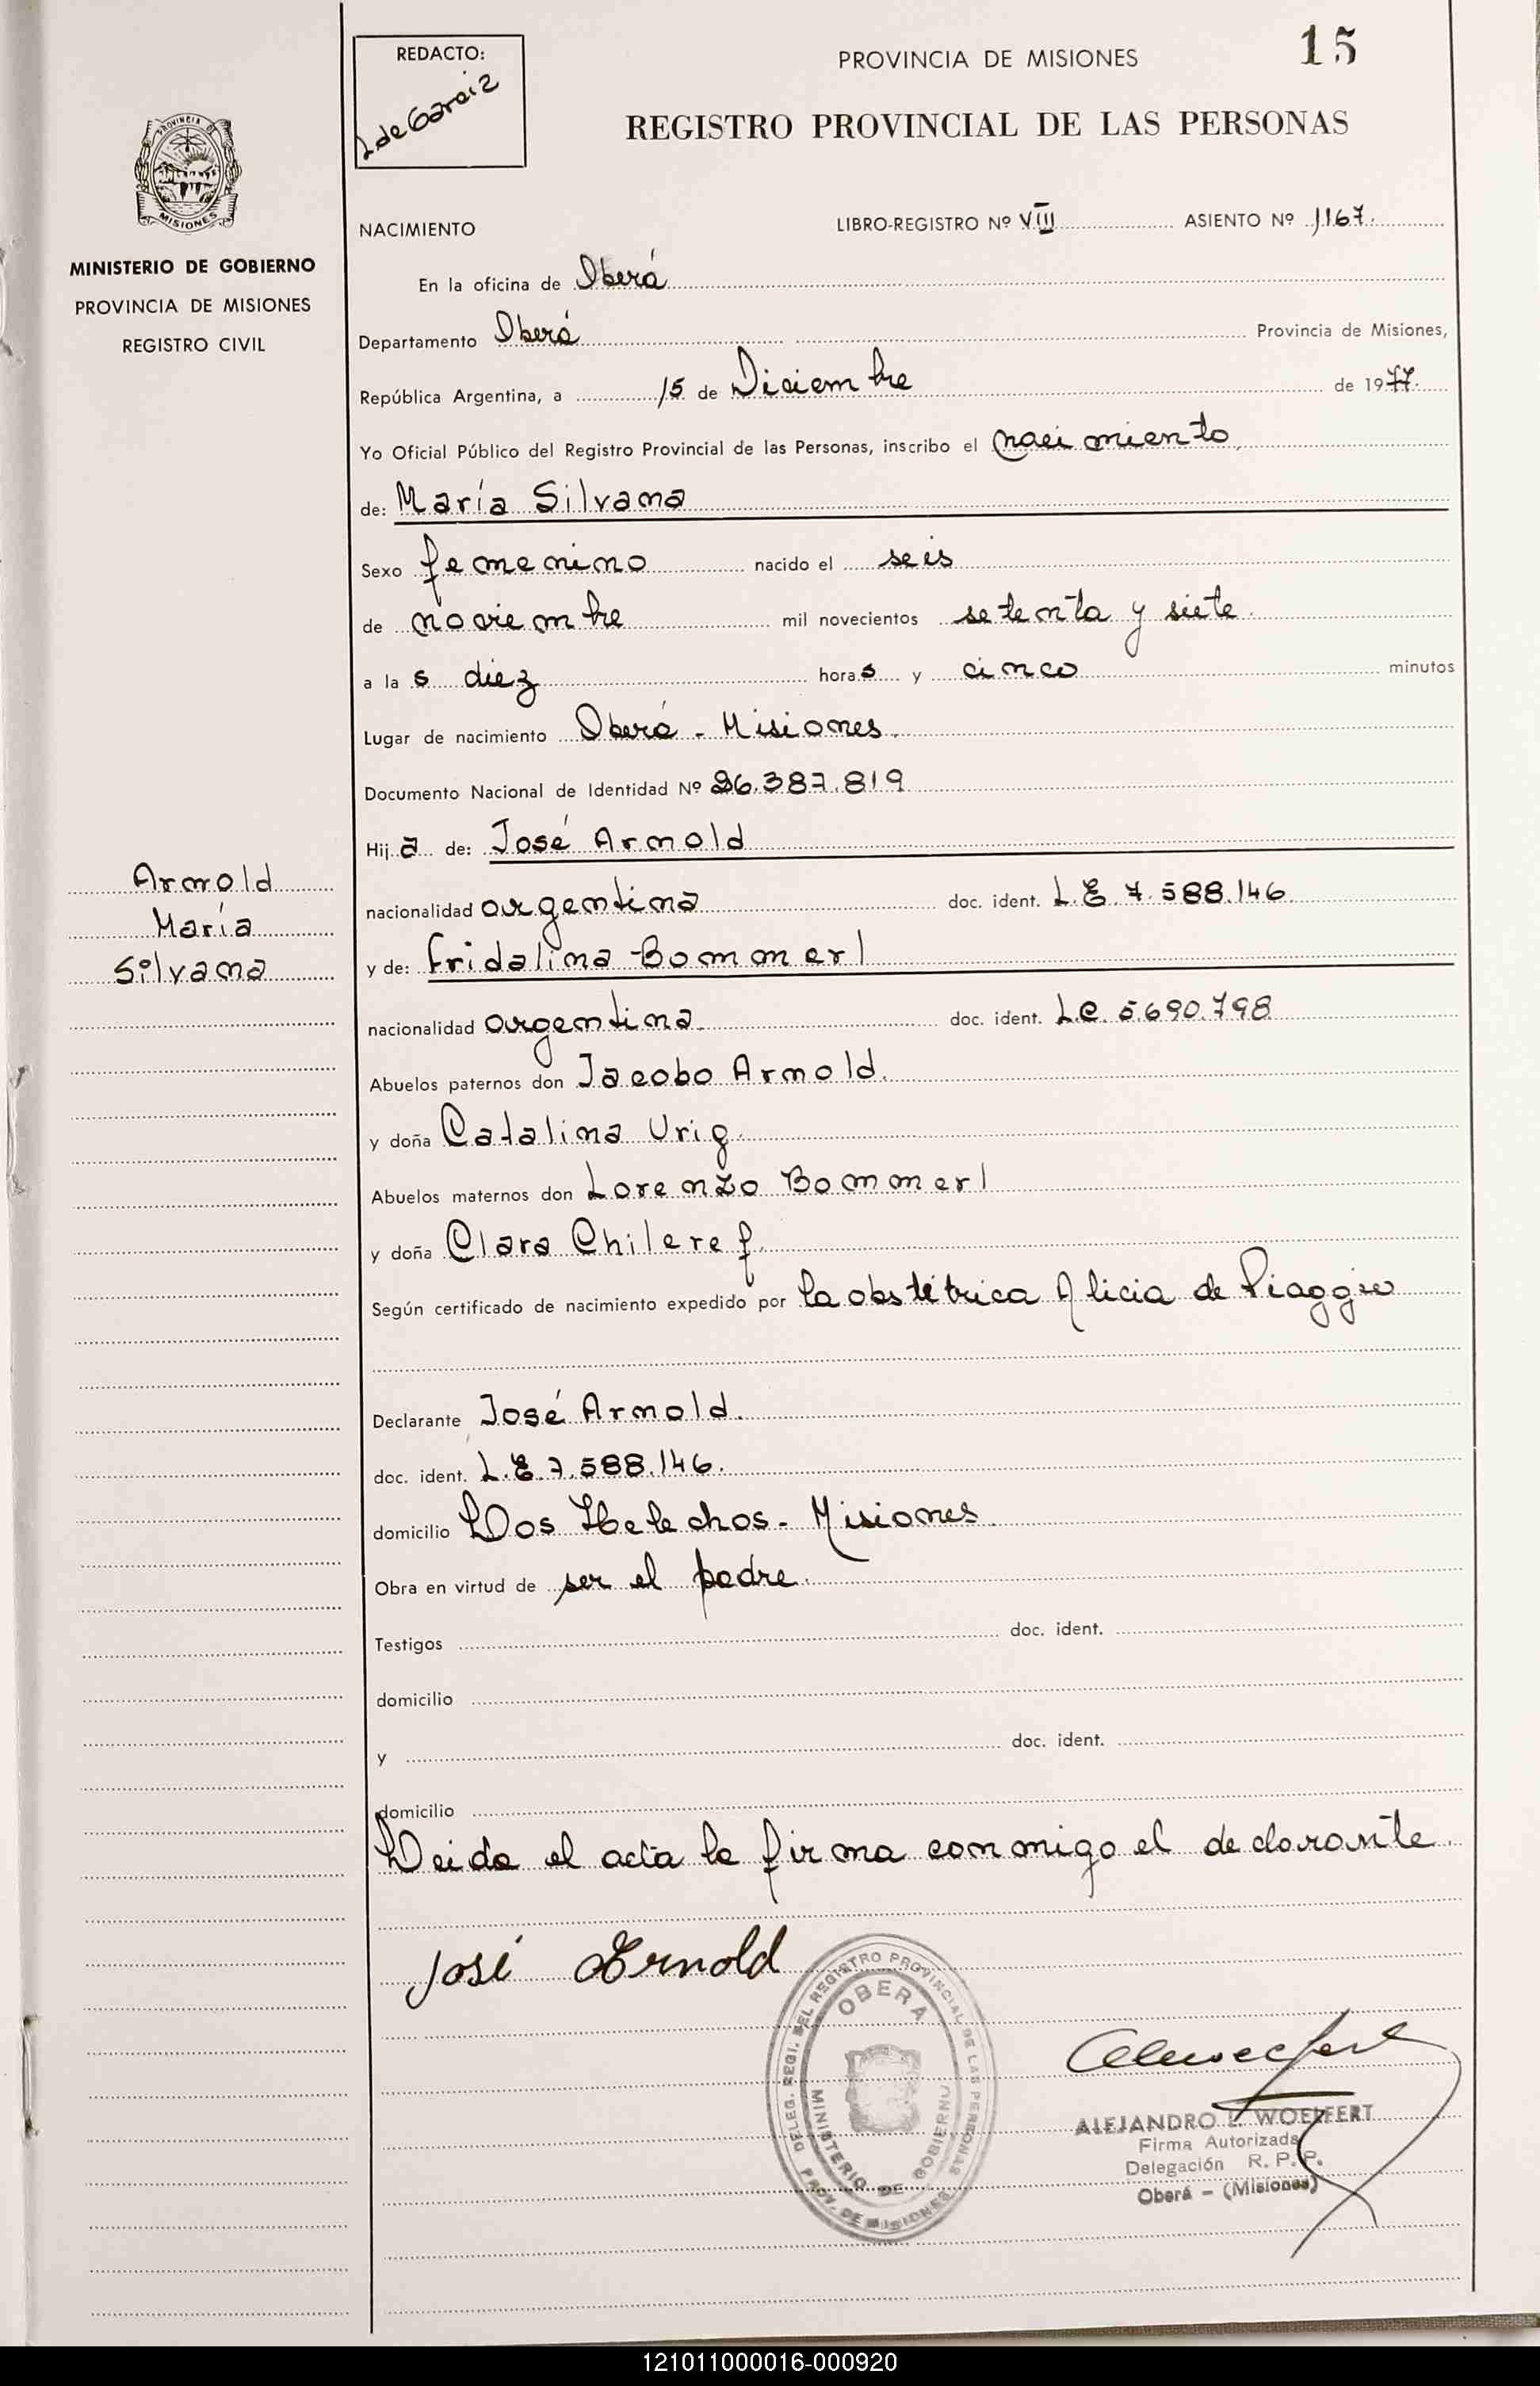 REDACTO:
L de Garaiz
PROVINCIA DE MISIONES
15
REGISTRO PROVINCIAL DE LAS PERSONAS
PROVINCIA DE
MISIONES
MINISTERIO DE GOBIERNO
PROVINCIA DE MISIONES
REGISTRO CIVIL
NACIMIENTO
LIBRO-REGISTRO Nº VIII ASIENTO Nº 1167.
En la oficina de Oberá
Departamento Oberá Provincia de Misiones,
República Argentina, a 15 de Diciembre de 1977.
Yo Oficial Público del Registro Provincial de las Personas, inscribo el nacimiento
de: María Silvana
Sexo femenino nacido el seis
de noviembre mil novecientos setenta y siete.
a las diez horas y cinco minutos
Lugar de nacimiento Oberá - Misiones.
Documento Nacional de Identidad Nº 26.387.819
Hija de: José Arnold
nacionalidad argentina doc. ident. L.E. 7.588.146
y de: Fridalina Bommerl
nacionalidad argentina. doc. ident. L.C. 5.690.798
Arnold
María
Silvana
Abuelos paternos don Jacobo Arnold.
y doña Catalina Urig.
Abuelos maternos don Lorenzo Bommerl
y doña Clara Chileref.
Según certificado de nacimiento expedido por la obstétrica Alicia de Piaggio
Declarante José Arnold.
doc. ident. L.E. 7.588.146.
domicilio Dos Helechos - Misiones.
Obra en virtud de ser el padre.
Testigos doc. ident.
domicilio
y doc. ident.
domicilio
Leida el acta la firma conmigo el declarante.
José Arnold
DELEG. REGI. DEL REGISTRO PROVINCIAL DE LAS PERSONAS
OBERA
MINISTERIO DE GOBIERNO
PROV. DE MISIONES
ALEJANDRO E. WOELFERT
Firma Autorizada
Delegación R. P. P.
Oberá - (Misiones)
121011000016-000920